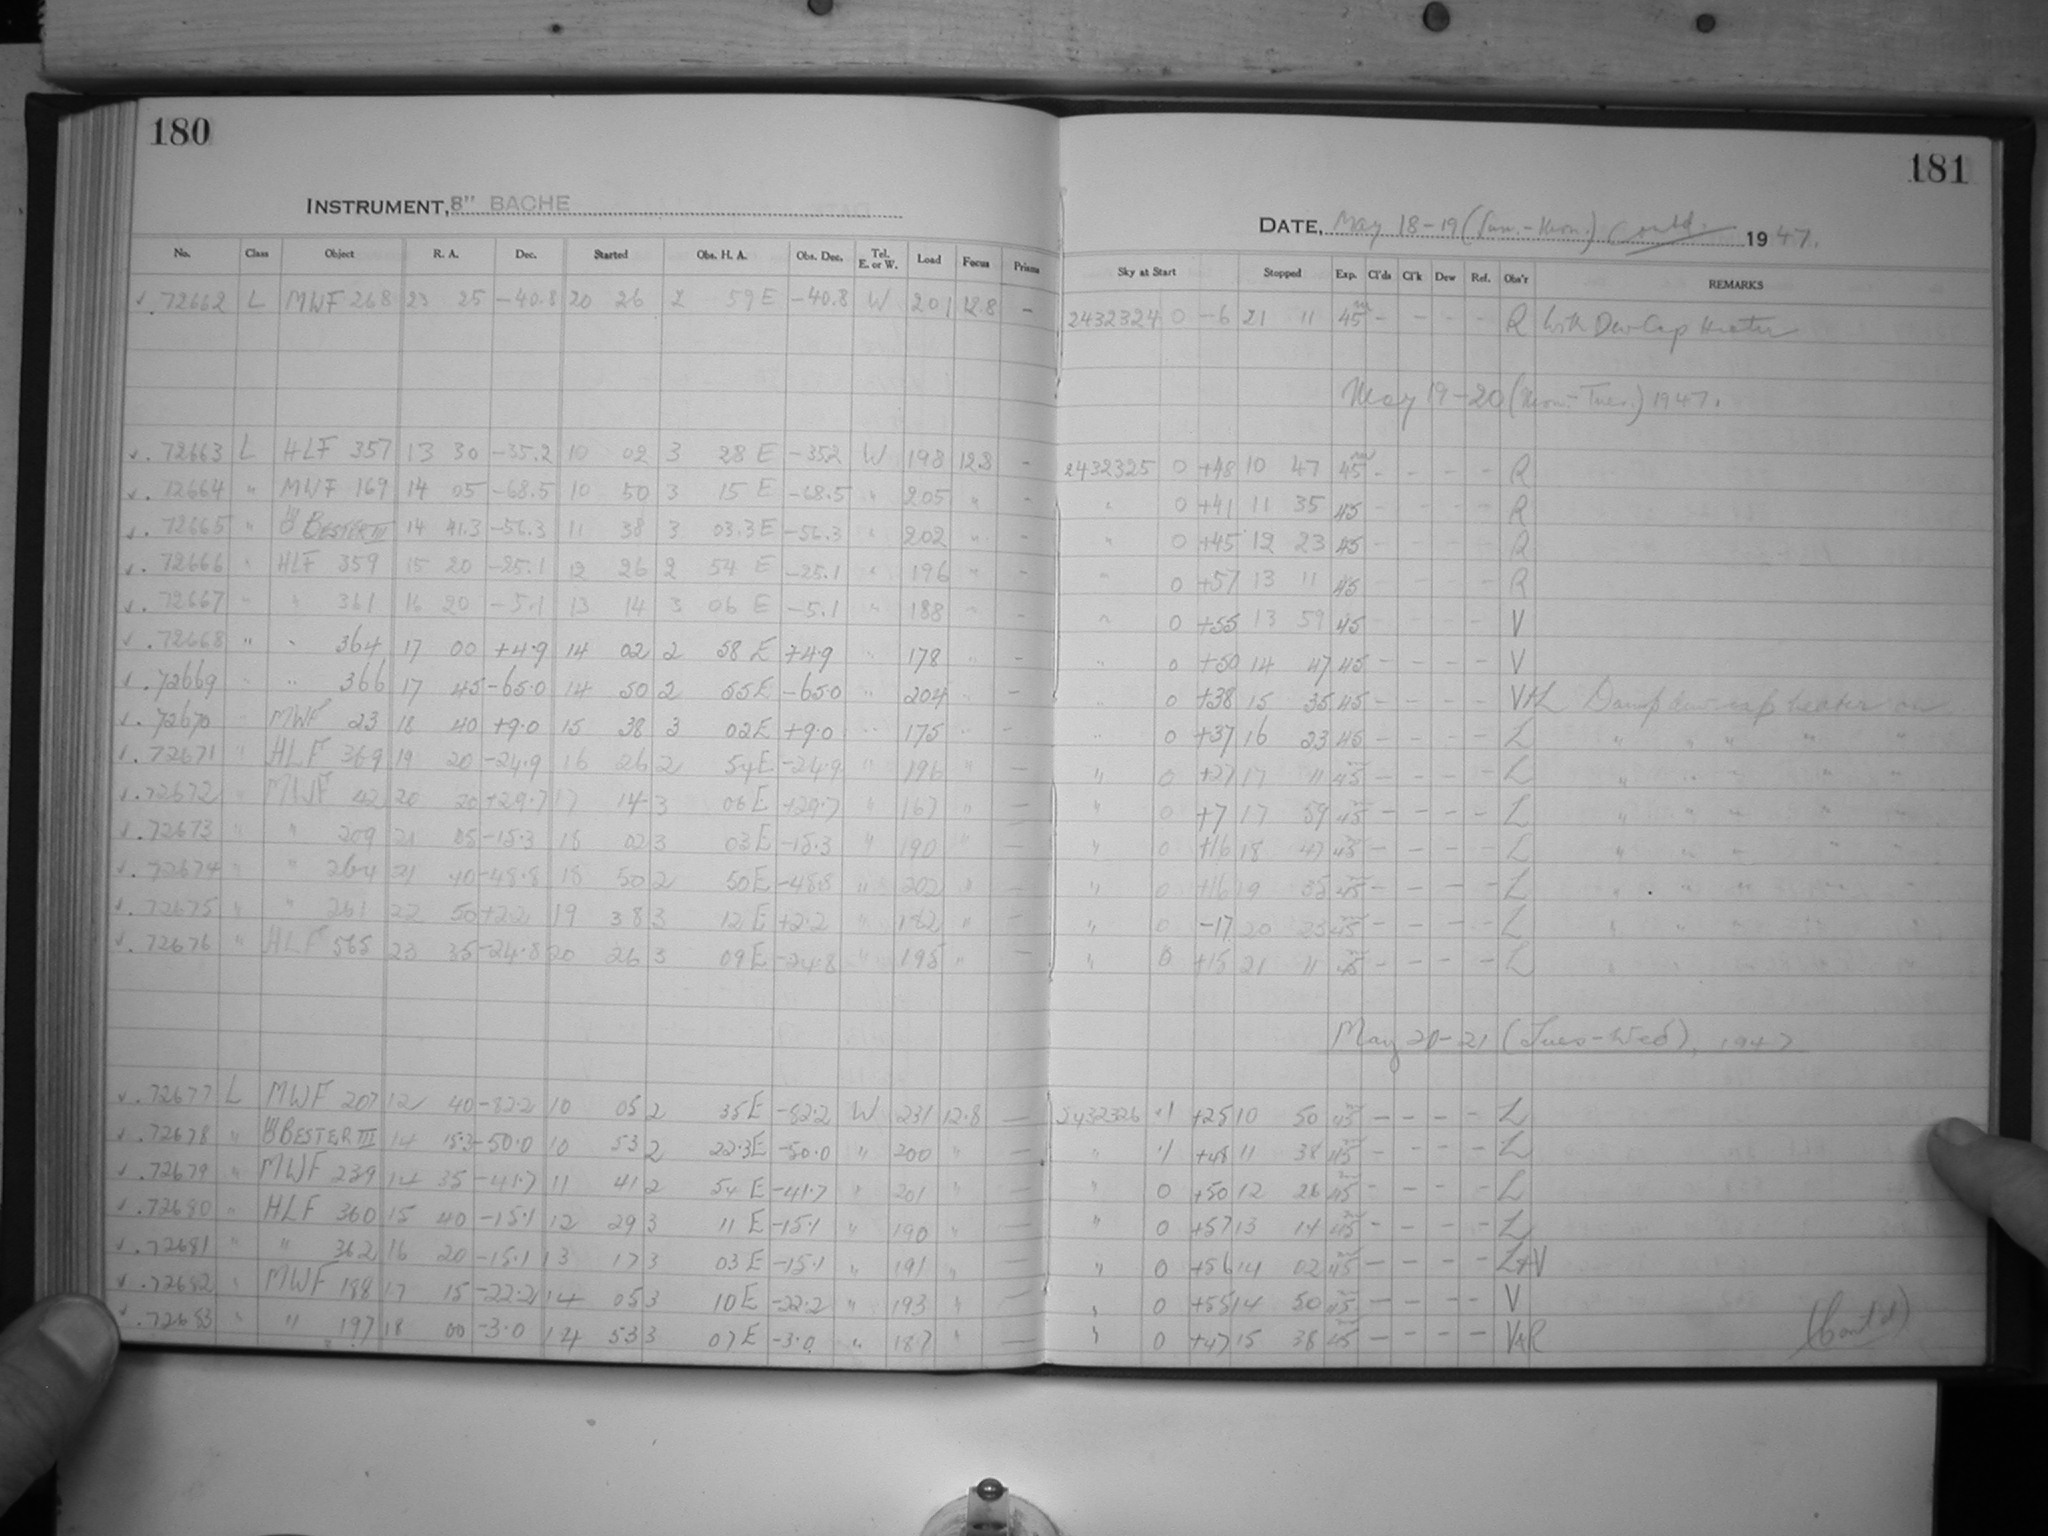 180
INSTRUMENT, 8" BACHE
No. Class Object R. A. Dec. Started Obs. H. A. Obs. Dec. Tel. E. or W. Load Focus Prisms
72662 L MWF 268 23 25 -40.8 20 26 2 59 E -40.8 W 201 12.8 -
72663 L HLF 357 13 30 -35.2 10 02 3 28 E -352 W 198 12.8 -
72664 " MWF 169 14 05 -68.5 10 50 3 15 E -68.5 " 205 " -
72665 " BESTER III 14 41.3 -56.3 11 38 3 03.3 E -56.3 " 202 " -
72666 " HLF 359 15 20 -25.1 12 26 2 54 E -25.1 " 196 " -
72667 " " 361 16 20 -5.1 13 14 3 06 E -5.1 " 188 " -
72668 " " 364 17 00 +4.9 14 02 2 58 E +4.9 " 178 " -
72669 " " 366 17 45 -65.0 14 50 2 55 E -65.0 " 204 " -
72670 " MWF 23 18 40 +9.0 15 38 3 02 E +9.0 " 175 " -
72671 " HLF 369 19 20 -24.9 16 26 2 54 E -24.9 " 196 " -
72672 " MWF 42 20 20 +29.7 17 14 3 06 E +29.7 " 167 " -
72673 " " 209 21 05 -15.3 18 02 3 03 E -15.3 " 190 " -
72674 " " 264 21 40 -48.8 18 50 2 50 E -48.8 " 202 " -
72675 " " 261 22 50 +2.2 19 38 3 12 E +2.2 " 182 " -
72676 " HLF 565 23 35 -24.8 20 26 3 09 E -24.8 " 195 " -
72677 L MWF 207 12 40 -82.2 10 05 2 35 E -82.2 W 231 12.8 -
72678 " BESTER III 14 15.3 -50.0 10 53 2 22.3 E -50.0 " 200 " -
72679 " MWF 239 14 35 -41.7 11 41 2 54 E -41.7 " 201 " -
72680 " HLF 360 15 40 -15.1 12 29 3 11 E -15.1 " 190 " -
72681 " " 362 16 20 -15.1 13 17 3 03 E -15.1 " 191 " -
72682 " MWF 188 17 15 -22.2 14 05 3 10 E -22.2 " 193 " -
72683 " " 197 18 00 -3.0 14 53 3 07 E -3.0 " 187 " -
181
DATE, May 18-19 (Sun.-Mon.) Contd. 1947.
Sky at Start Stopped Exp. Cl'ds Cl'k Dew Ref. Obs'r REMARKS
2432324 0 -6 21 11 45 - - - - R With Dew Cap Heater
May 19-20 (Mon.-Tues.) 1947.
2432325 0 +48 10 47 45 - - - - R
" 0 +41 11 35 45 - - - - R
" 0 +45 12 23 45 - - - - R
" 0 +57 13 11 45 - - - - R
" 0 +55 13 59 45 - - - - V
" 0 +50 14 47 45 - - - - V
" 0 +38 15 35 45 - - - - V+L Damp dew cap heater on
" 0 +37 16 23 45 - - - - L " " " " "
" 0 +27 17 11 45 - - - - L " " " " "
" 0 +7 17 59 45 - - - - L " " " " "
" 0 +16 18 47 45 - - - - L " " " " "
" 0 +16 19 35 45 - - - - L " " " " "
" 0 -17 20 23 45 - - - - L " " " " "
" 0 +15 21 11 45 - - - - L " " " " "
May 20-21 (Tues-Wed), 1947
2432326 .1 +25 10 50 45 - - - - L
" .1 +48 11 38 45 - - - - L
" 0 +50 12 26 45 - - - - L
" 0 +57 13 14 45 - - - - L
" 0 +56 14 02 45 - - - - L+V
" 0 +55 14 50 45 - - - - V
" 0 +47 15 38 45 - - - - V&R
(Cont'd)